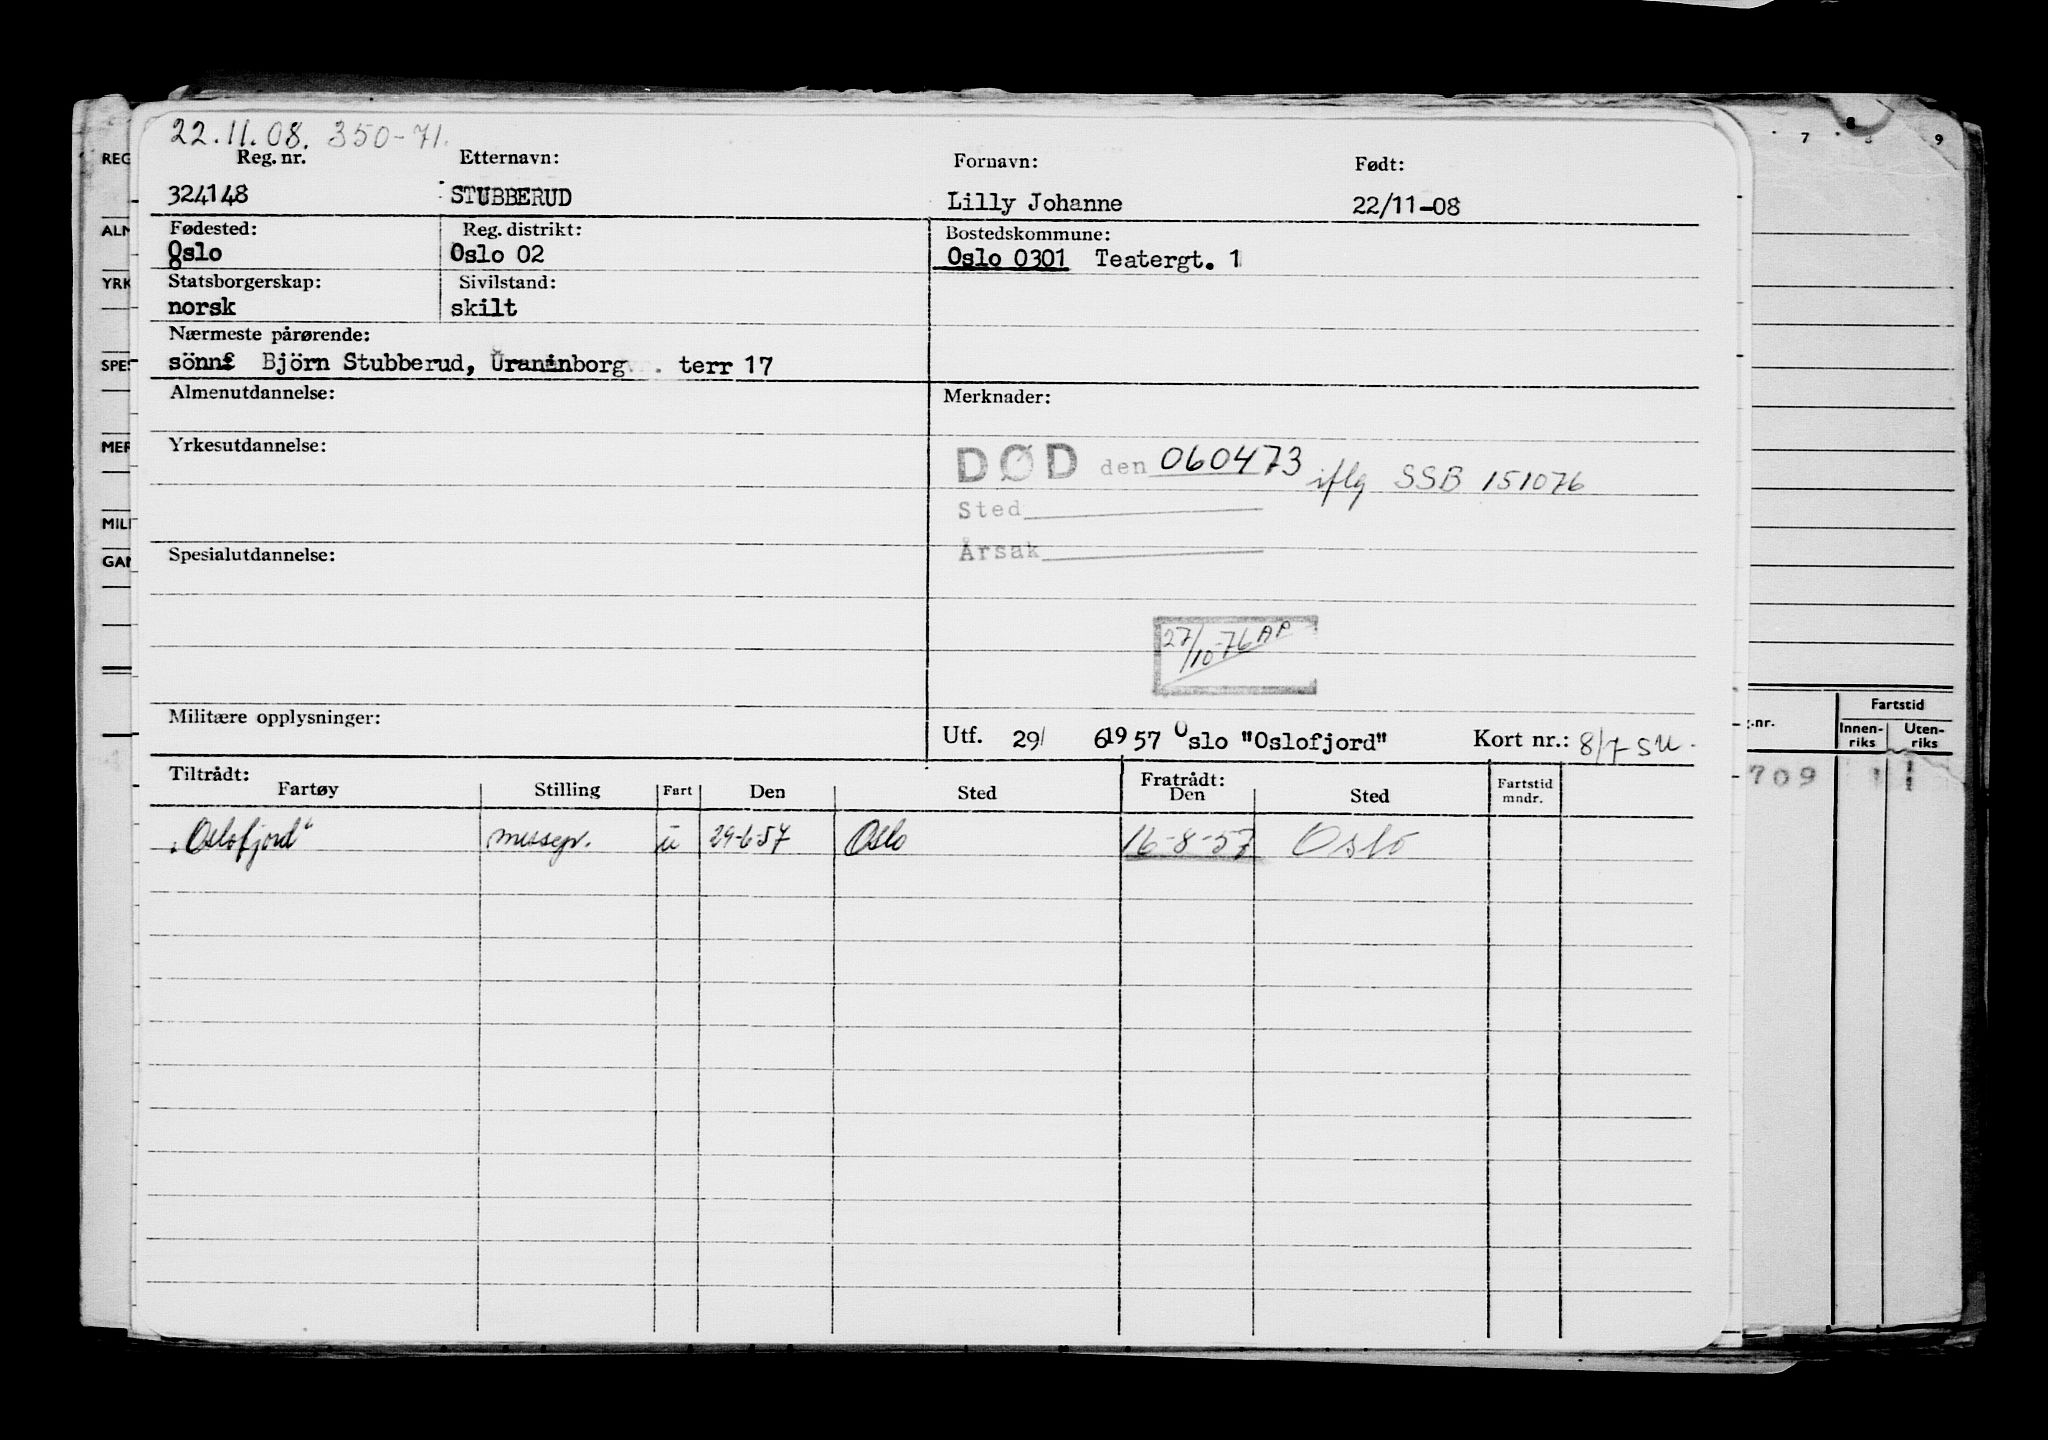 22.11.08. 350-71.
Reg. nr. Etternavn: Fornavn: Født:
324148 STUBBERUD Lilly Johanne 22/11-08
Fødested: Reg. distrikt: Bostedskommune:
Oslo Oslo 02 Oslo 0301 Teatergt. 1
Statsborgerskap: Sivilstand:
norsk skilt
Nærmeste pårørende:
Björn Stubberud, terr 17
Almenutdannelse: Merknader:
Yrkesutdannelse:
DØD den 060473 iflg SSB 151076
Sted
Årsak
Spesialutdannelse:
27/10-76 AP
Militære opplysninger:
Utf. 29/ 6 1957 Oslo "Oslofjord" Kort nr.: 8/7 SU.
Tiltrådt: Fratrådt:
Fartøy Stilling Fart Den Sted Den Sted Fartstid mndr.
"Oslofjord" messepr. u 29-6-57 Oslo 16-8-57 Oslo
REG
ALM
YRK
SPES
MER
MILI
GAN
7 8 9
Fartstid
g.nr. Innen-riks Uten-riks
709 1 1